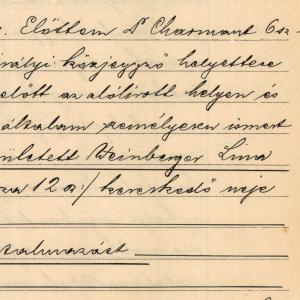 Előttem Dr Charmant
királyi közjegyző helyettese
előtt az alólirott helyen és
általam személyesen ismert
született Weinberger Lina
12 sz:/ kereskedő neje